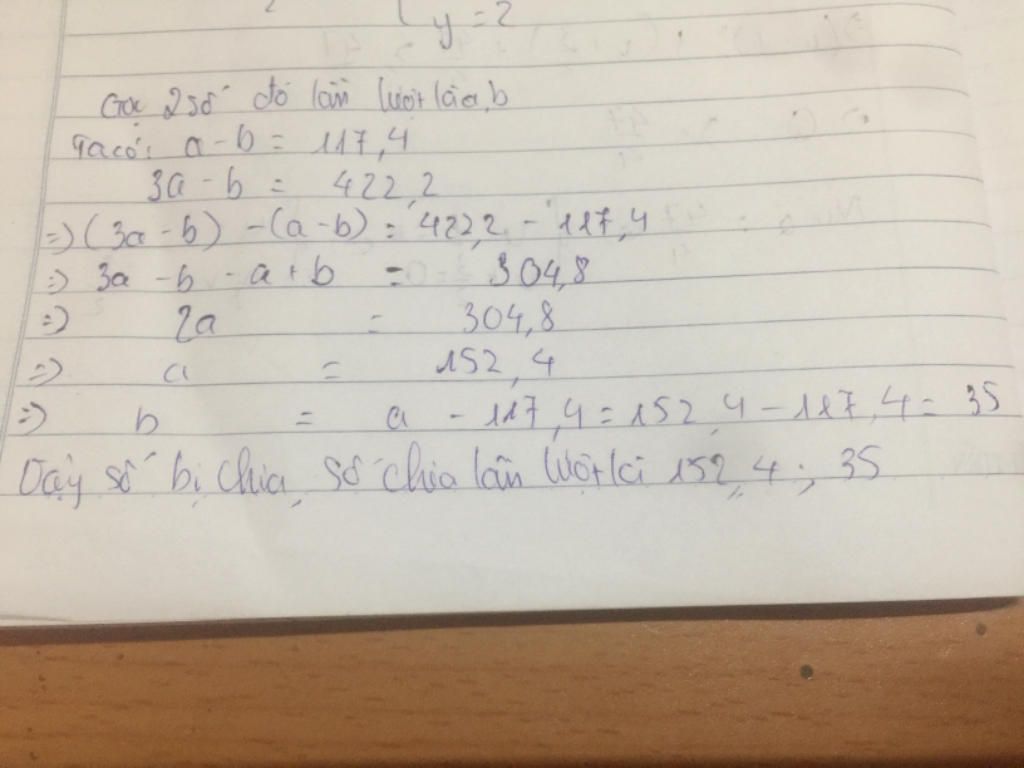 y = 2
Gọi 2 số đó lần lượt là a, b
Ta có: a - b = 117,4
3a - b = 422,2
=> (3a - b) - (a - b) = 422,2 - 117,4
=> 3a - b - a + b = 304,8
=> 2a = 304,8
=> a = 152,4
=> b = a - 117,4 = 152,4 - 117,4 = 35
Vậy số bị chia, số chia lần lượt là 152,4; 35